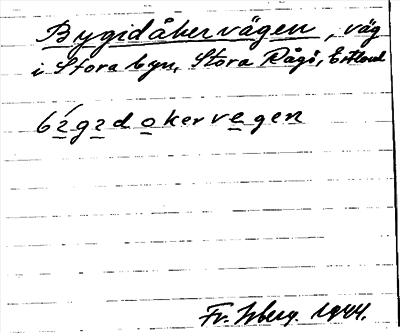 Bygidåkervägen, väg
i Stora byn, Stora Rågö, Estland
bígidokervegen
Fr. Isberg. 1944.